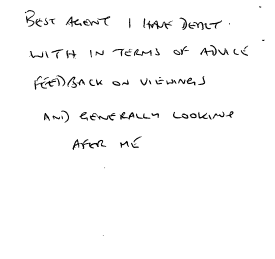 BEST AGENT I HAVE DEALT.
WITH IN TERMS OF ADVICE
FEEDBACK ON VIEWINGS
AND GENERALLY LOOKING
AFER ME